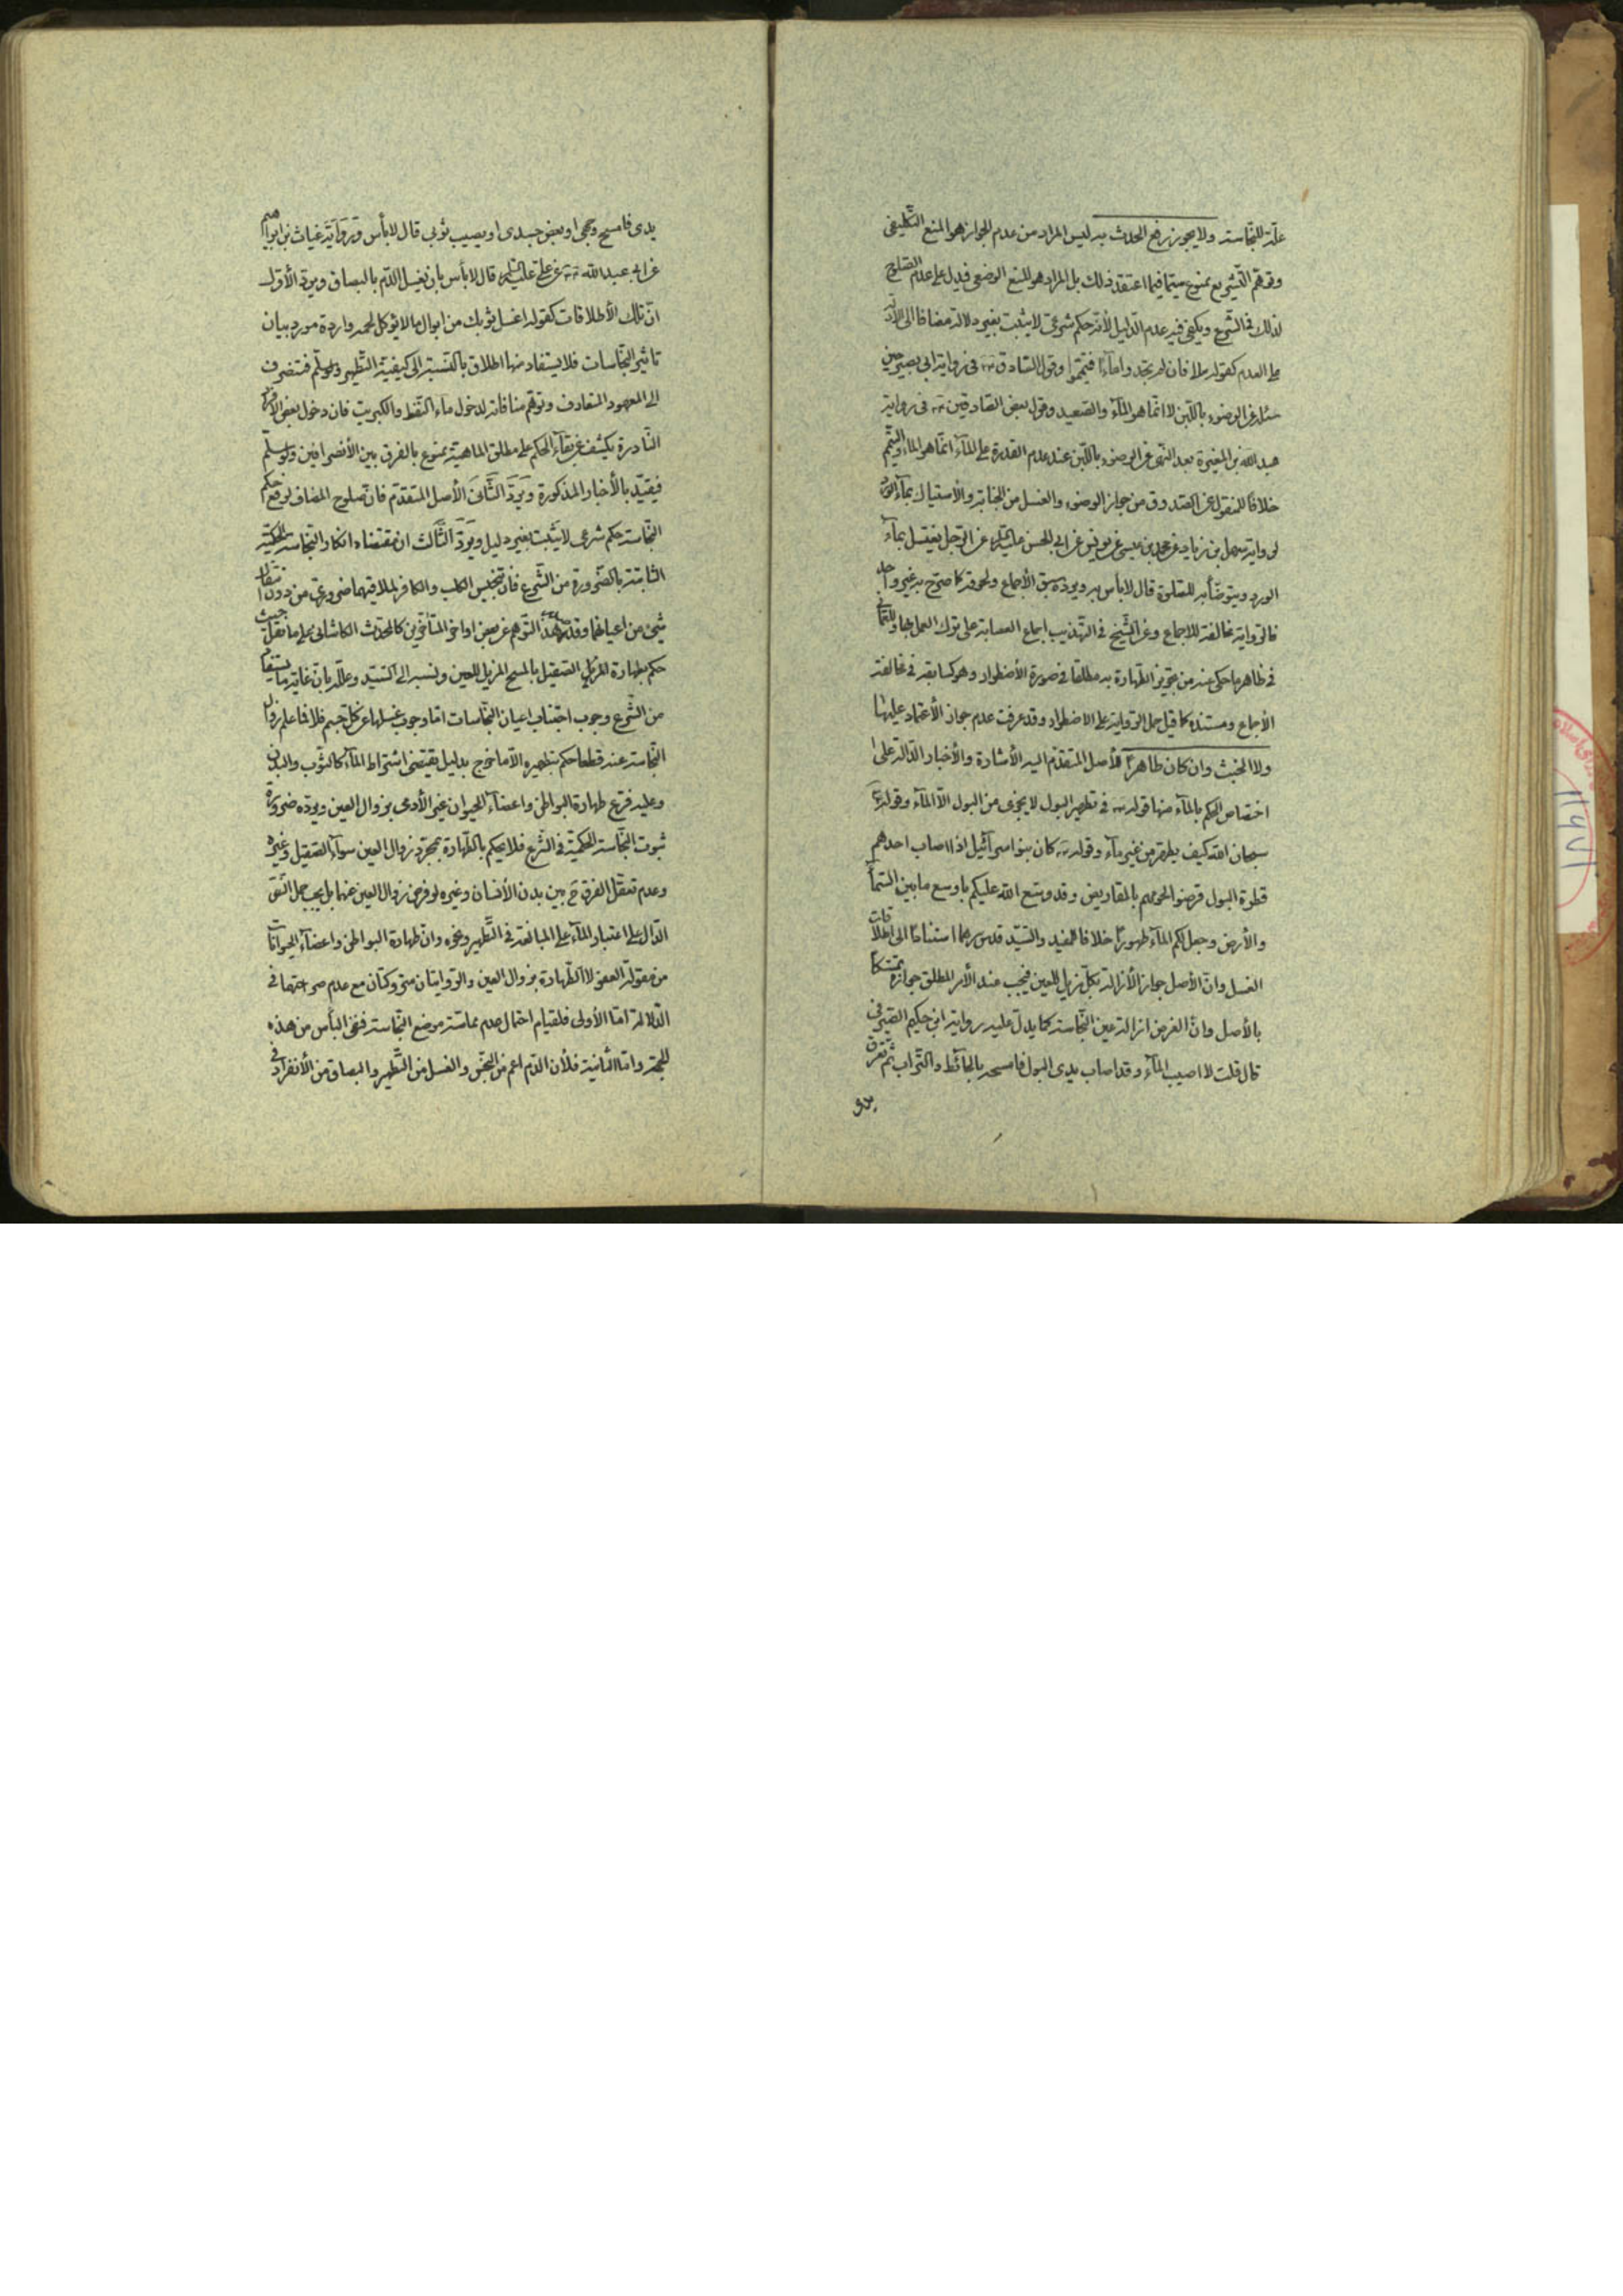 علّة للنجاسة ولا يجوز رفع الحدث به ليس المراد من عدم الجواز هو المنع التكليفى
وتوهّم التّشريع ممنوع سيّما فيما اعتقد ذلك بل المراد هو المنع الوضعى فيدلّ على عدم الصّلوح
لذلك فى الشّرع ويكفى فيه عدم الدّليل لأنّه حكم شرعىّ لا يثبت بغير دلالة مضافا الى الأدلّة
على العدم كقوله تعالى فان لم تجدوا ماءً فتيمّموا وقول الصّادق فى رواية ابى بصير حين
سئل عن الوضوء باللّبن لا انّما هو المآء والصّعيد وقول بعض الصّادقين فى رواية
عبد الله بن المغيرة بعد النّهى عن الوضوء باللّبن عند عدم القدرة على المآء انّما هو الماء والتّيمّم
خلافًا للمنقول عن الصّدوق من جواز الوضوء والغسل من الجنابة والأستياك بمآء الورد
لرواية سهل بن زياد عن محمّد بن عيسى عن يونس عن ابى الحسن عليه السّلام عن الرّجل يغتسل بمآء
الورد ويتوضّأ به للصّلوة قال لا بأس به ويردّه سبق الأجماع ولحوقه كما صرّح به غير واحد
فالرّواية مخالفة للاجماع وعن الشّيخ فى التّهذيب اجماع العصابة على ترك العمل بها وللعمّانى
فى ظاهر ما حكى عنه من تجويز الطّهارة به مطلقا فى صورة الأضطرار وهو كسابقه فى مخالفة
الأجماع ومستنده كما قيل حمل الرّواية على الاضطرار وقد عرفت عدم جواز الأعتماد عليها
ولا الخبث وان كان طاهرًا للأصل المتقدّم اليه الأشارة والأخبار الدّالّة على
اختصاص الحكم بالمآء منها قوله فى تطهير البول لا يجزى من البول الّا المآء وقوله
سبحان الله كيف يطهّر من غير مآء وقوله كان بنو اسرآئيل اذا اصاب احدهم
قطرة البول قرضوا لحومهم بالمقاريض وقد وسّع الله عليكم باوسع ما بين السّمآء
والأرض وجعل لكم المآء طهورًا خلافا للمفيد والسّيّد قدس سرهما استنادًا الى اطلاقات
الغسل وانّ الأصل جواز الأزالة بكلّ مزيل للعين فيجب عند الأمر المطلق جوازه تمسّكا
بالأصل وانّ الغرض ازالة عين النّجاسة كما يدلّ عليه رواية ابن حكيم الصّيرفى
قال قلت لا اصيب المآء وقد اصاب يدى البول فامسحه بالحائط والتّراب ثمّ تعرق
يدى
يدى فامسح وجهى او بعض جسدى او يصيب ثوبى قال لا بأس ورواية غياث بن ابراهيم
عن ابى عبد الله عن علىّ عليه السّلام قال لا بأس بان يغسل الدّم بالبصاق ويردّ الأوّل
انّ تلك الأطلاقات كقوله اغسل ثوبك من ابوال ما لا يؤكل لحمه واردة مورد بيان
تاثير النّجاسات فلا يستفاد منها اطلاق بالنّسبة الى كيفيّة التّطهير ولو سلّم فتنصرف
الى المعهود المتعارف وتوهّم منافاته لدخول مآء النّفط والكبريت فان دخول بعض الأفراد
النّادرة يكشف عن بقآء الحكم على مطلق الماهيّة ممنوع بالفرق بين الأنصرافين ولو سلّم
فيقيّد بالأخبار المذكورة ويردّ الثّانى الأصل المتقدّم فانّ صلوح المضاف لرفع حكم
النّجاسة حكم شرعى لا يثبت بغير دليل ويردّ الثّالث ان مقتضاه انكار النّجاسة الحكميّة
الثابتة بالضّرورة من الشّرع فانّ تنجيس الكلب والكافر لملاقيهما ضرورىّ من دون انتقال
شىء من اعيانهما وقد هذا التّوهّم عن بعض اواخر المتأخّرين كالمحدّث الكاشانى على ما نقل حيث
حكم بطهارة الصّقيل بالمسح المزيل للعين ونسبه الى السّيّد وعلّله بانّ غاية ما يستفاد
من الشّرع وجوب اجتناب اعيان النّجاسات امّا وجوب غسلها عن كلّ جسم فلا فما علم زوال
النّجاسة عنه قطعا حكم بتطهيره الّا ما خرج بدليل يقتضى اشتراط المآء كالثّوب والبدن
وعليه فرّع طهارة البواطن واعضآء الحيوان غير الأدمى بزوال العين ويردّه ضرورة
ثبوت النّجاسة الحكميّة فى الشّرع فلا يحكم بالطّهارة بمجرّد زوال العين سوآء الصّقيل وغيره
وعدم تعقّل الفرق ح بين بدن الأنسان وغيره لو فرض زوال العين عنهما بل يجب حمل النّصّ
الدّال على اعتبار المآء على المبالغة فى التّطهير ونحوه وانّ طهارة البواطن واعضآء الحيوانات
من مقولة العفو لا الطّهارة بزوال العين والرّوايتان متروكتان مع عدم صراحتهما فى
الدّلالة امّا الأولى فلقيام احتمال عدم مماسّة موضع النّجاسة فنفى البأس من هذه
الجهة وامّا الثّانية فلأن الدّم اعم من النّجس والغسل من التّطهير والبصاق من الأنفراد فى